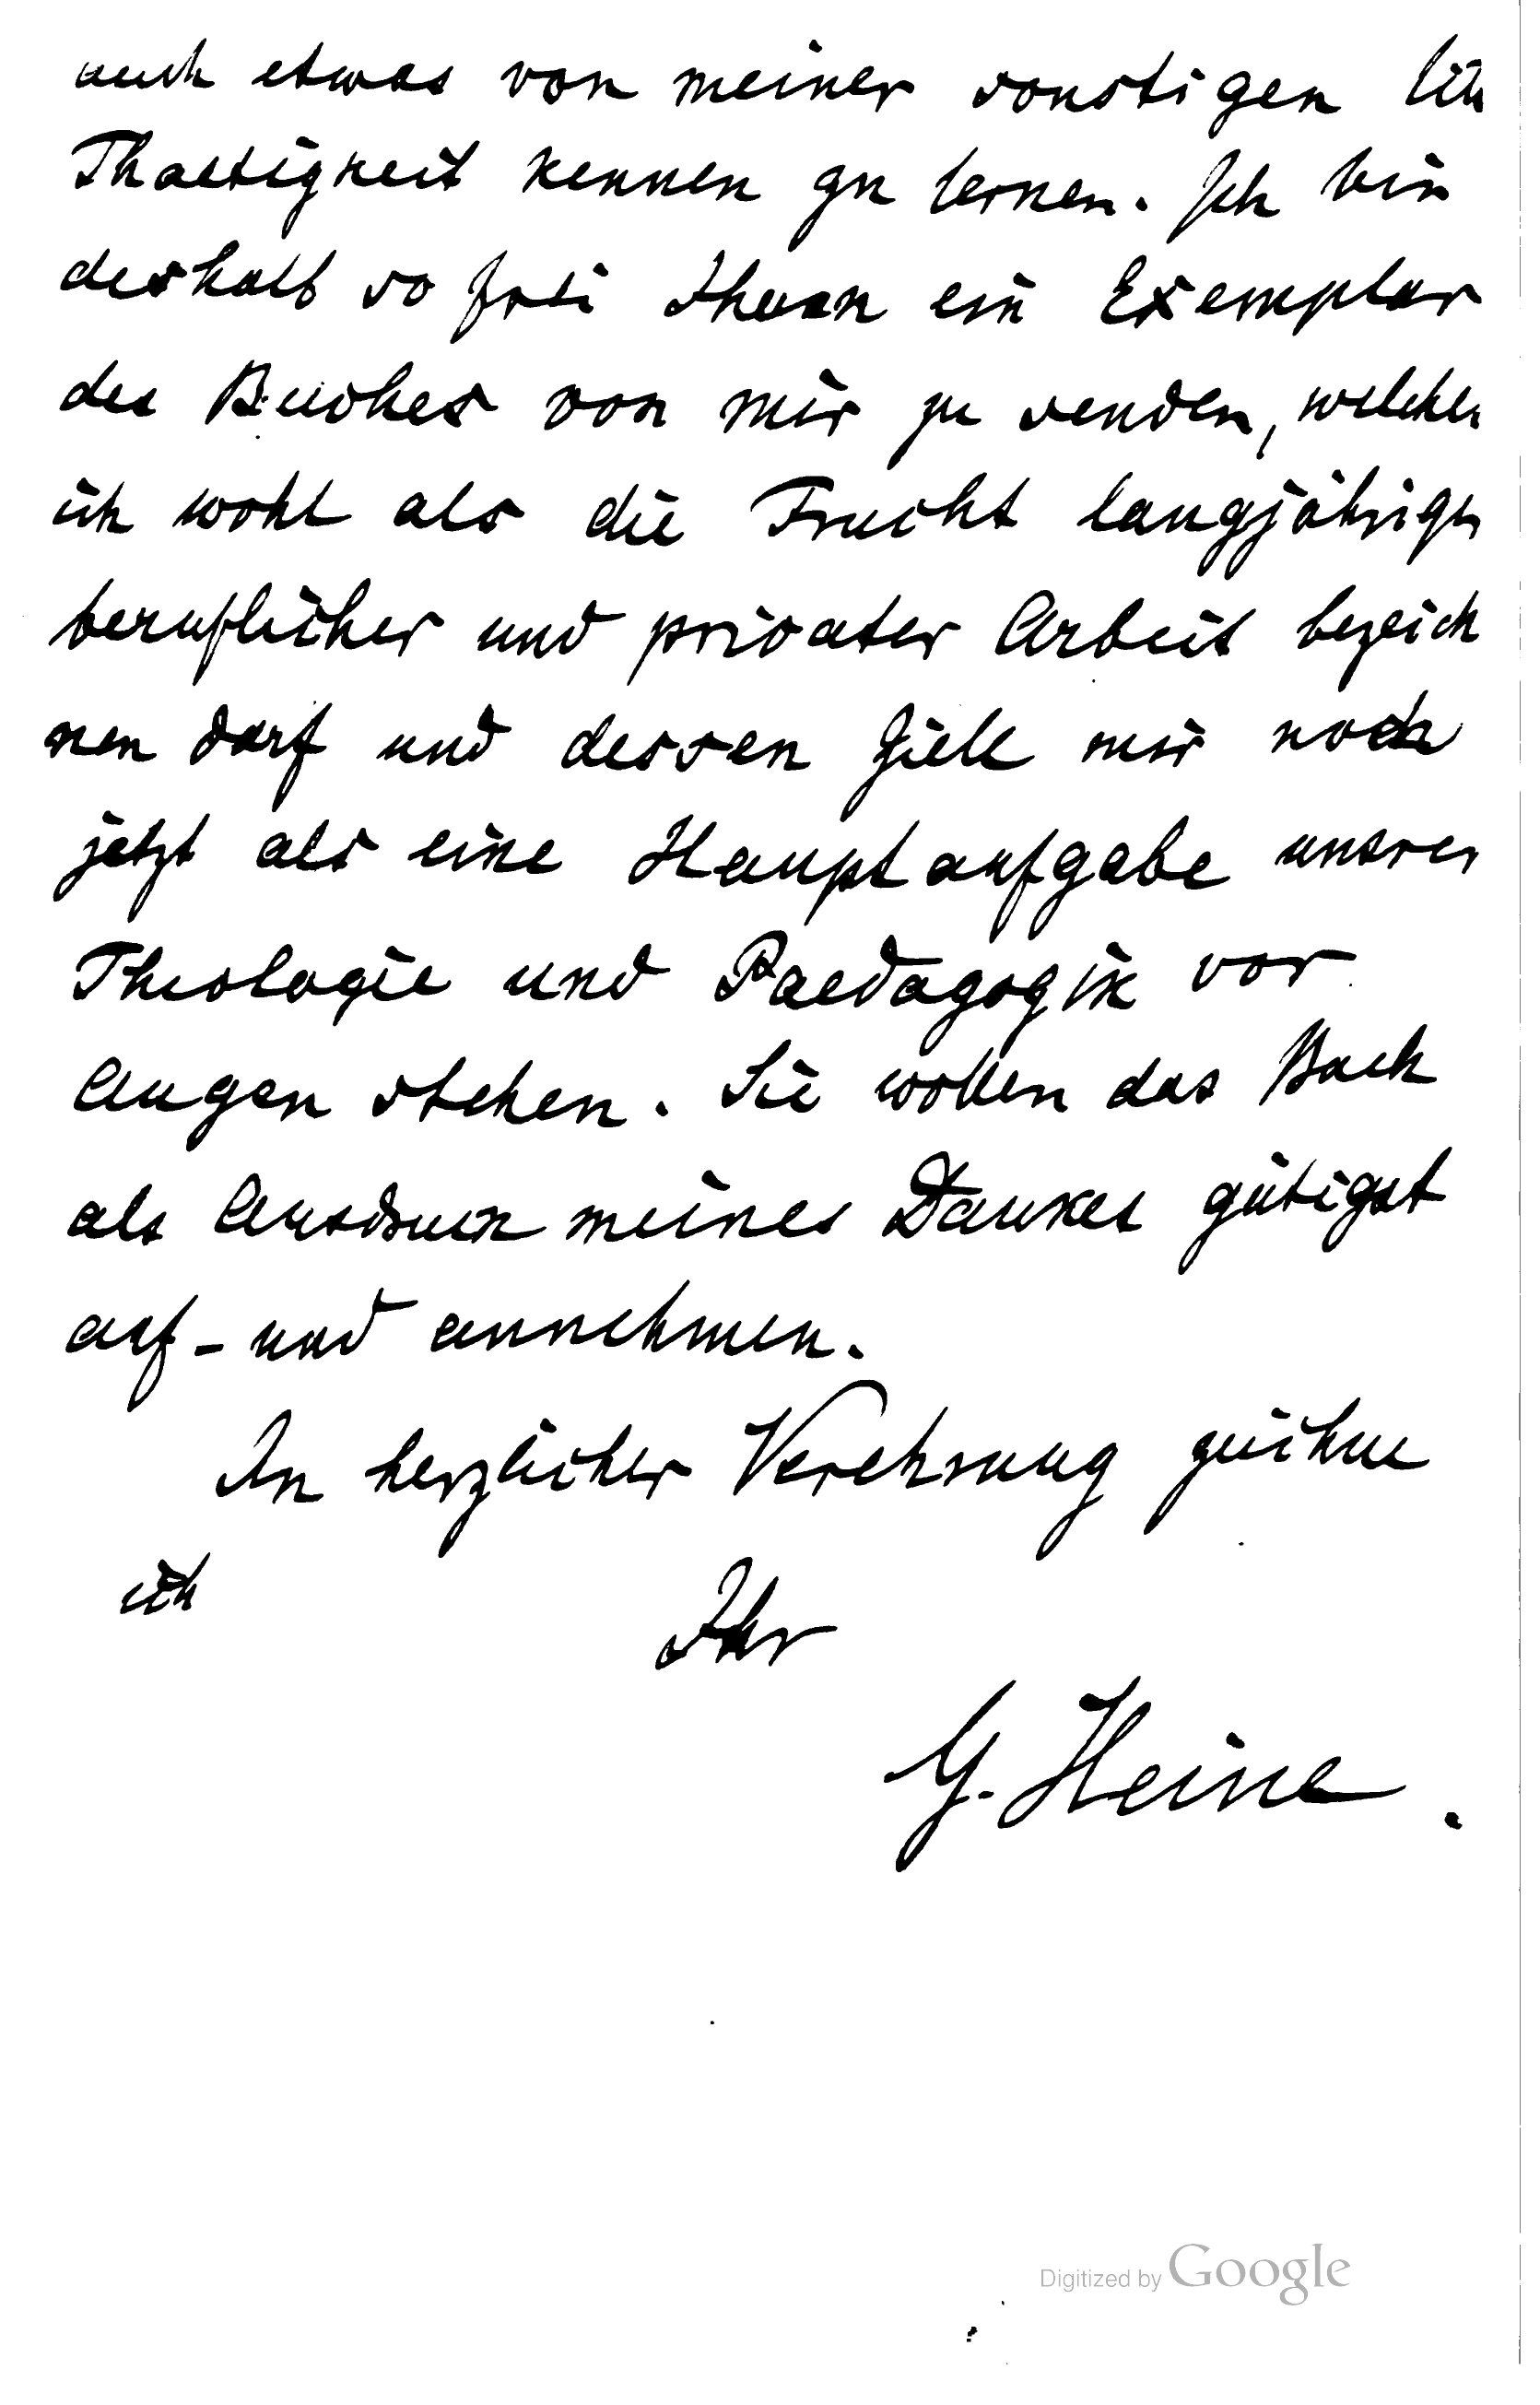 auch etwas von meiner sonstigen
Thaetigkeit kennen zu lernen. Ich bin
deshalb so frei Ihnen ein Exemplar
des Buches von mir zu senden, welches
ich wohl als die Frucht langjähriger
beruflicher und privater Arbeit bezeich
nen darf und dessen Ziele mir noch
jetzt als eine Hauptaufgabe unsrer
Theologie und Paedagogik vor
Augen stehen. Sie wollen das Buch
als Ausdruck meines Dankes gütigst
auf- und annehmen.
In herzlicher Verehrung zeichne
ich
Ihr
G. Heine.
Digitized by Google